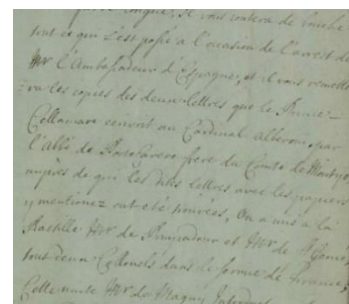 longue, Il vous contera de bouche
tout ce qui s'est passé a l'occasion de l'arrest de
Mr l'Ambassadeur d'Espagne, et il vous remett
ra les copies des deux lettres que le Prince
Cellamare ecrivoit au Cardinal Alberoni, par
l'abbé de Portocarero frere du Comte de Montijo,
aupres de qui les dites lettres avec les papiers
y mentionez ont eté trouvées, On a mis a la
Bastille Mr de Pompadour et Mr de St Geniés,
tous deux Collonels dans le service de france,
Cette nuite Mr de Magny Intend